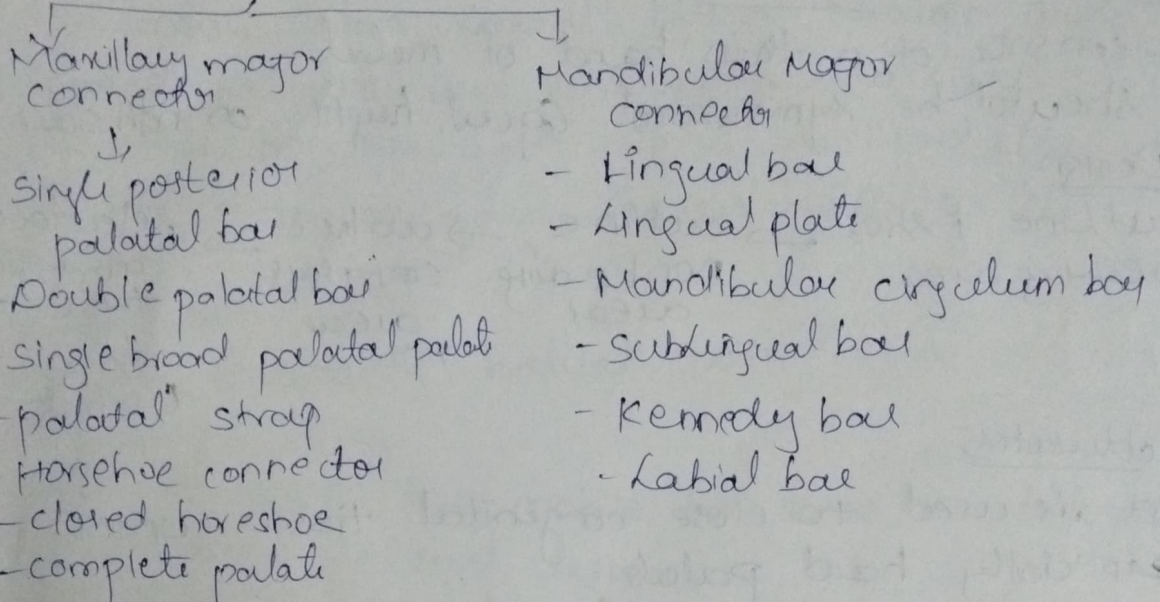 Maxillary major
connector
single posterior
palatal bar
Double palatal bar
single broad palatal palat
- palatal strap
Horsehoe connector
- closed horeshoe
- complete palate
Mandibular Major
connector
- Lingual bar
- Lingual plate
- Mandibular cingulum bar
- Sublingual bar
- Kennedy bar
- Labial bar